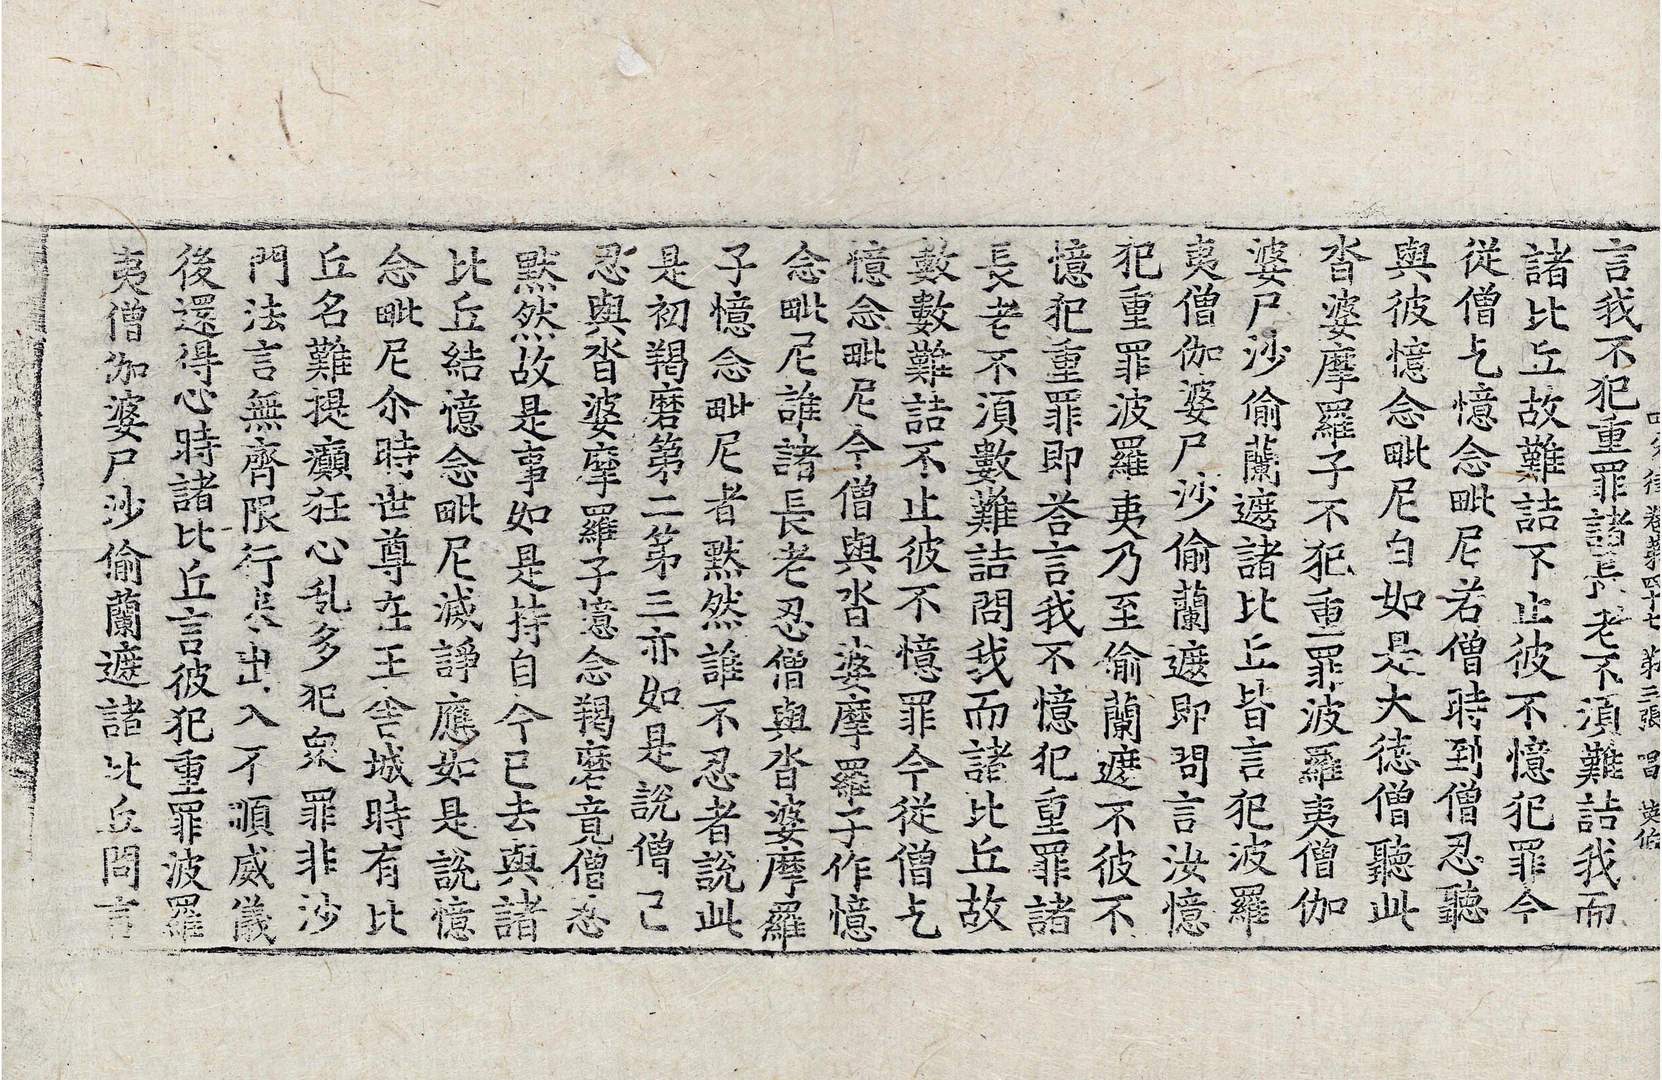 四分律卷第四十七 第三張 唱 英伯
言我不犯重罪諸長老不湏難詰我而
諸比丘故難詰不止彼不憶犯罪今
從僧乞憶念毗尼若僧時到僧忍聽
與彼憶念毗尼白如是大德僧聽此
沓婆摩羅子不犯重罪波羅夷僧伽
婆尸沙偷蘭遮諸比丘皆言犯波羅
夷僧伽婆尸沙偷蘭遮即問言汝憶
犯重罪波羅夷乃至偷蘭遮不彼不
憶犯重罪即荅言我不憶犯重罪諸
長老不湏數難詰問我而諸比丘故
數數難詰不止彼不憶罪今從僧乞
憶念毗尼今僧與沓婆摩羅子作憶
念毗尼誰諸長老忍僧與沓婆摩羅
子憶念毗尼者默然誰不忍者說此
是初羯磨第二第三亦如是說僧已
忍與沓婆摩羅子憶念羯磨竟僧忍
默然故是事如是持自今已去與諸
比丘結憶念毗尼滅諍應如是說憶
念毗尼尒時世尊在王舍城時有比
丘名難提癲狂心乱多犯衆罪非沙
門法言無齊限行來出入不順威儀
後還得心時諸比丘言彼犯重罪波羅
夷僧伽婆尸沙偷蘭遮諸比丘問言